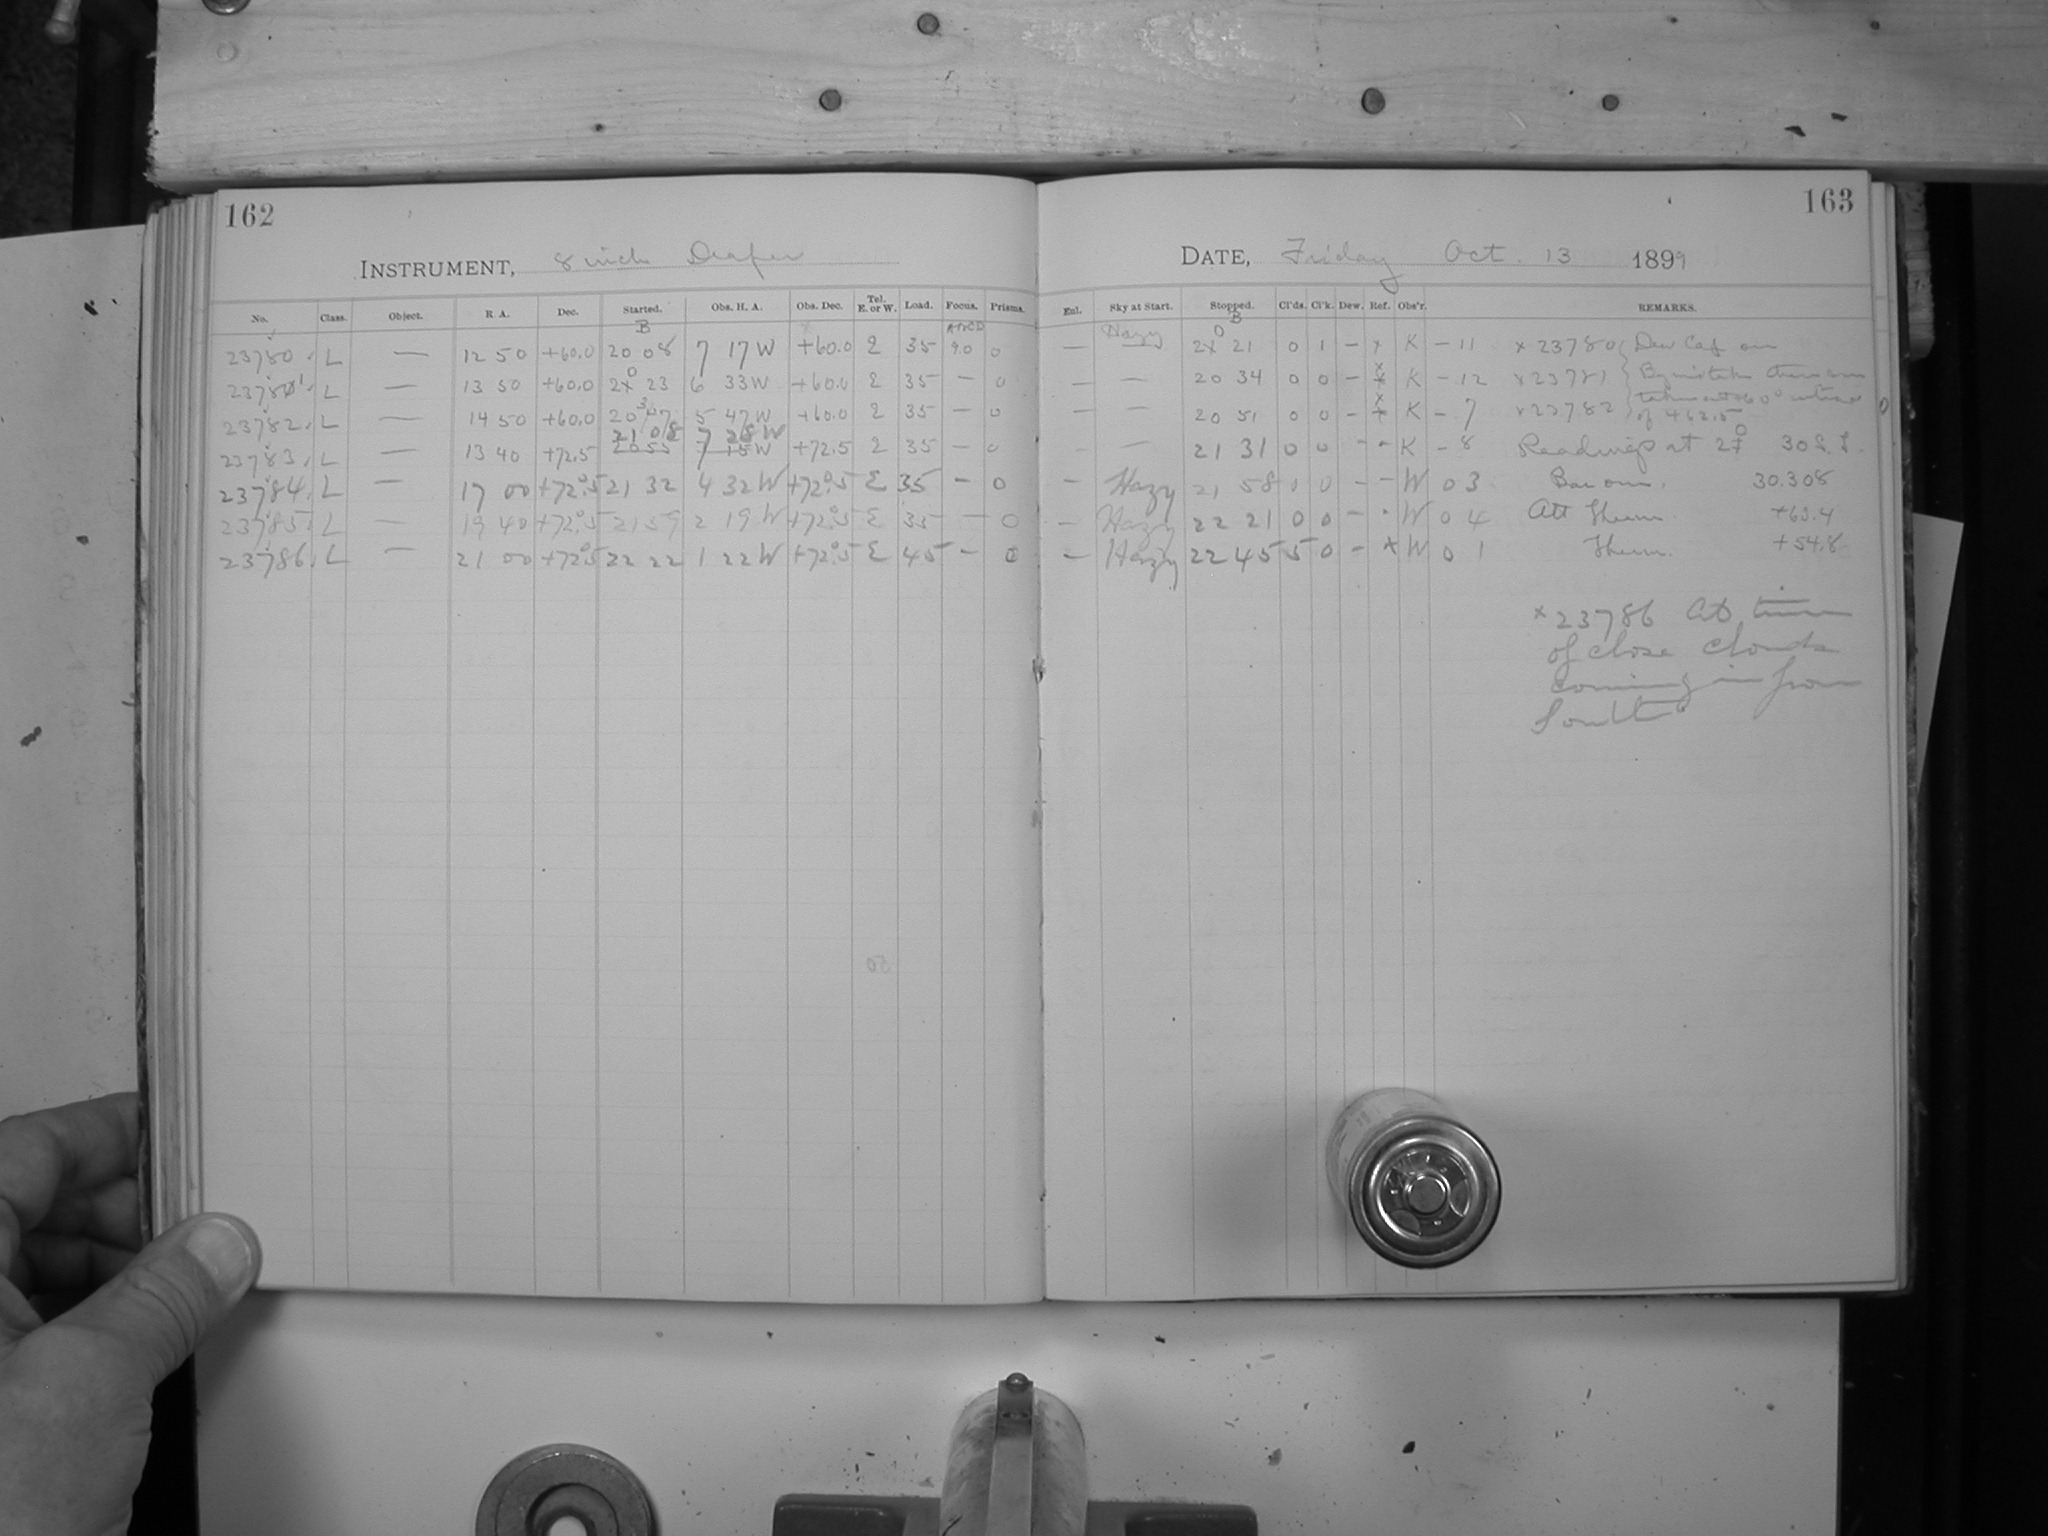 162
INSTRUMENT, 8 inch Draper
No. Class. Object. R. A. Dec. Started. Obs. H. A. Obs. Dec. Tel. E. or W. Load. Focus. Prisms.
B ABCD
23780 L — 12 50 +60.0 20 08 7 17 W +60.0 E 35 9.0 0
23781 L — 13 50 +60.0 20 23 6 33 W +60.0 E 35 — 0
23782 L — 14 50 +60.0 20 37 5 47 W +60.0 E 35 — 0
21 08 7 28 W
23783 L — 13 40 +72.5 20 55 7 15 W +72.5 E 35 — 0
23784 L — 17 00 +72°.5 21 32 4 32 W +72°.5 E 35 — 0
23785 L — 19 40 +72°.5 21 59 2 19 W +72°.5 E 35 — 0
23786 L — 21 00 +72°.5 22 22 1 22 W +72°.5 E 45 — 0
163
DATE, Friday Oct. 13 1899
Enl. Sky at Start. Stopped. Cl'ds. Cl'k. Dew. Ref. Obs'r. REMARKS.
B
— Hazy 20 21 0 1 — x K – 11 x 23780 Dew Cap on
— — 20 34 0 0 — x K – 12 x 23781 By mistake these were
— — 20 51 0 0 — x K – 7 x 23782 taken at +60° instead
of +62.5
- — 21 31 0 0 - - K – 8 Readings at 20 30 S.T.
— Hazy 21 58 0 0 — — W 0 3 Barom. 30.308
— Hazy 22 21 0 0 — - W 0 4 Att Therm. +63.4
— Hazy 22 45 5 0 — x W 0 1 Therm. +54.8
x 23786 At time
of close clouds
coming in from
South